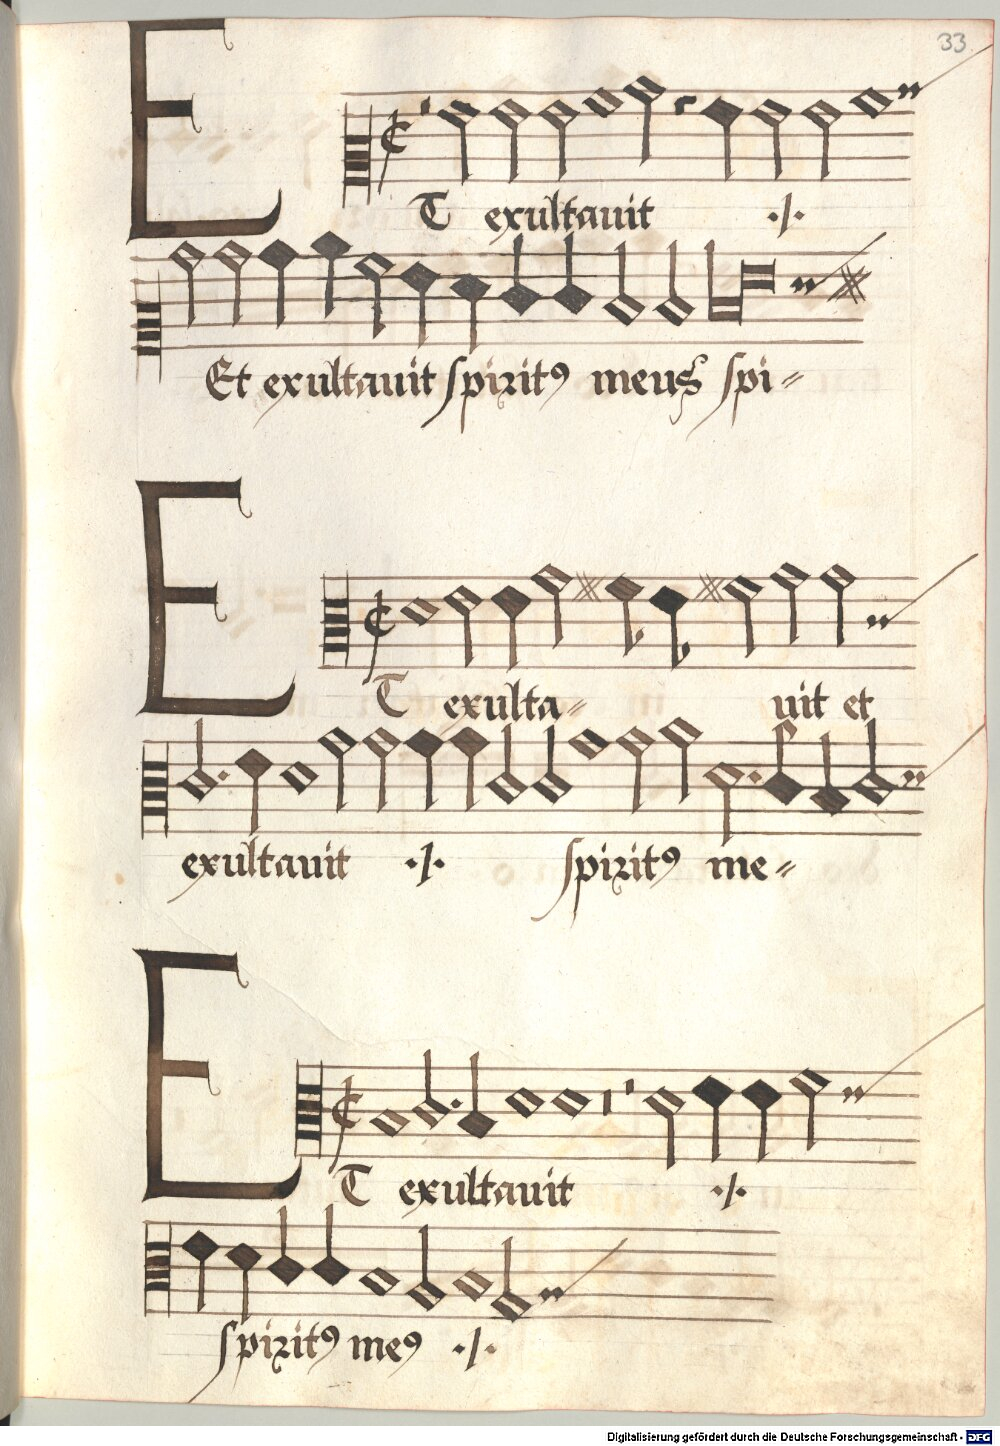 33
ET exultauit ·/·
Et exultauit spiritꝰ meus spi=
ET exulta= uit et
exultauit ·/· spiritꝰ me=
ET exultauit ·/·
spiritꝰ meꝰ ·/·
Digitalisierung gefördert durch die Deutsche Forschungsgemeinschaft - DFG